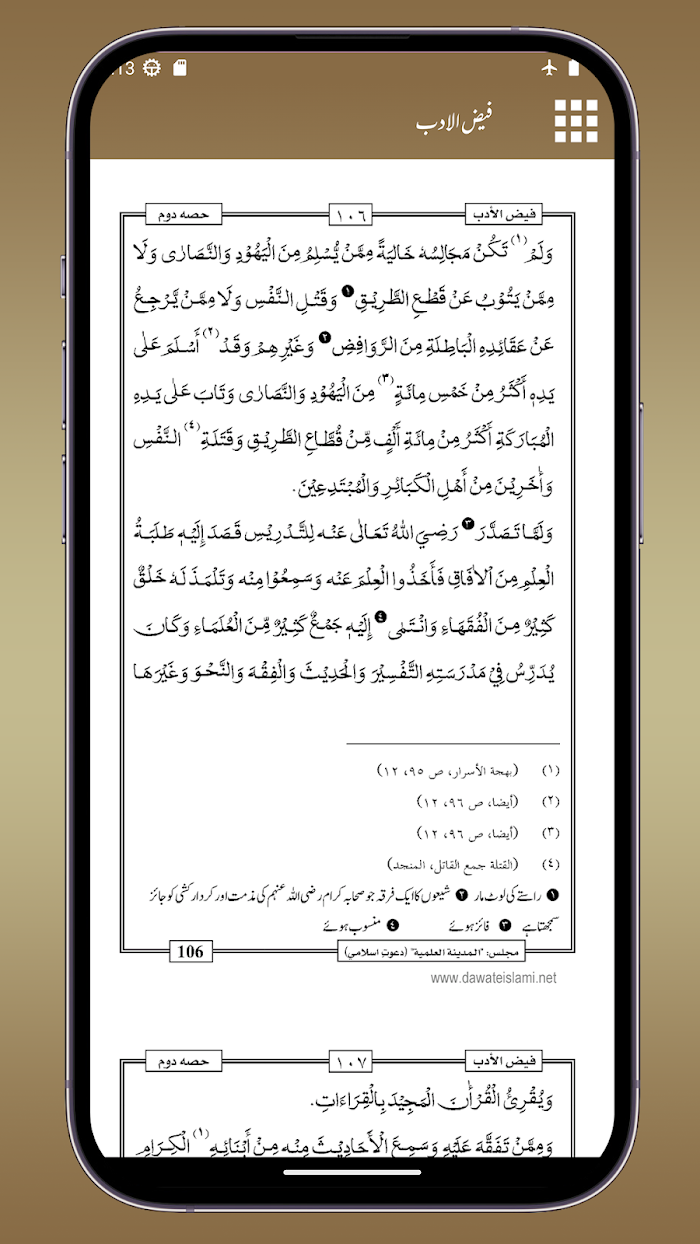 :13
فیض الادب
فيض الأدب ١٠٦ حصه دوم
وَلَمْ(١) تَكُنْ مَجَالِسُهٗ خَالِيَةً مِمَّنْ يُّسْلِمُ مِنَ الْيَهُوْدِ وَالنَّصَارٰى وَلَا
مِمَّنْ يَتُوْبُ عَنْ قَطْعِ الطَّرِيْقِ❶ وَقَتْلِ النَّفْسِ وَلَا مِمَّنْ يَّرْجِعُ
عَنْ عَقَائِدِهِ الْبَاطِلَةِ مِنَ الرَّوَافِضِ❷ وَغَيْرِهِمْ وَقَدْ(٢) أَسْلَمَ عَلٰى
يَدِهٖ أَكْثَرُ مِنْ خَمْسِ مِائَةٍ(٣) مِنَ الْيَهُوْدِ وَالنَّصَارٰى وَتَابَ عَلٰى يَدِهِ
الْمُبَارَكَةِ أَكْثَرُ مِنْ مِائَةِ أَلْفٍ مِّنْ قُطَّاعِ الطَّرِيْقِ وَقَتَلَةِ(٤) النَّفْسِ
وَأٰخَرِيْنَ مِنْ أَهْلِ الْكَبَائِرِ وَالْمُبْتَدِعِيْنَ.
وَلَمَّا تَصَدَّرَ❸ رَضِيَ اللهُ تَعَالٰى عَنْه لِلتَّدْرِيْسِ قَصَدَ إِلَيْهِ طَلَبَةُ
الْعِلْمِ مِنَ الْاٰفَاقِ فَأَخَذُوا الْعِلْمَ عَنْه وَسَمِعُوْا مِنْه وَتَلْمَذَ لَهٗ خَلْقٌ
كَثِيْرٌ مِنَ الْفُقَهَاءِ وَانْتَمٰى❹ إِلَيْهِ جَمْعٌ كَثِيْرٌ مِّنَ الْعُلَمَاءِ وَكَانَ
يُدَرِّسُ فِيْ مَدْرَسَتِهِ التَّفْسِيْرَ وَالْحَدِيْثَ وَالْفِقْهَ وَالنَّحْوَ وَغَيْرَهَا
(١) (بهجة الأسرار، ص ٩٥، ١٢)
(٢) (أيضا، ص ٩٦، ١٢)
(٣) (أيضا، ص ٩٦، ١٢)
(٤) (القتلة جمع القاتل، المنجد)
❶ راستے کی لوٹ مار ❷ شیعوں کا ایک فرقہ جو صحابہ کرام رضی اللہ عنہم کی مذمت اور کردار کشی کو جائز
سمجھتا ہے ❸ فائز ہوئے ❹ منسوب ہوئے
مجلس: "المدينة العلمية" (دعوتِ اسلامی) 106
www.dawateislami.net
فيض الأدب ١٠٧ حصه دوم
وَيُقْرِئُ الْقُرْاٰنَ الْمَجِيْدَ بِالْقِرَاءَاتِ.
وَمِمَّنْ تَفَقَّهَ عَلَيْهِ وَسَمِعَ الْأَحَادِيْثَ مِنْه مِنْ أَبْنَائِهِ(١) الْكِرَامِ